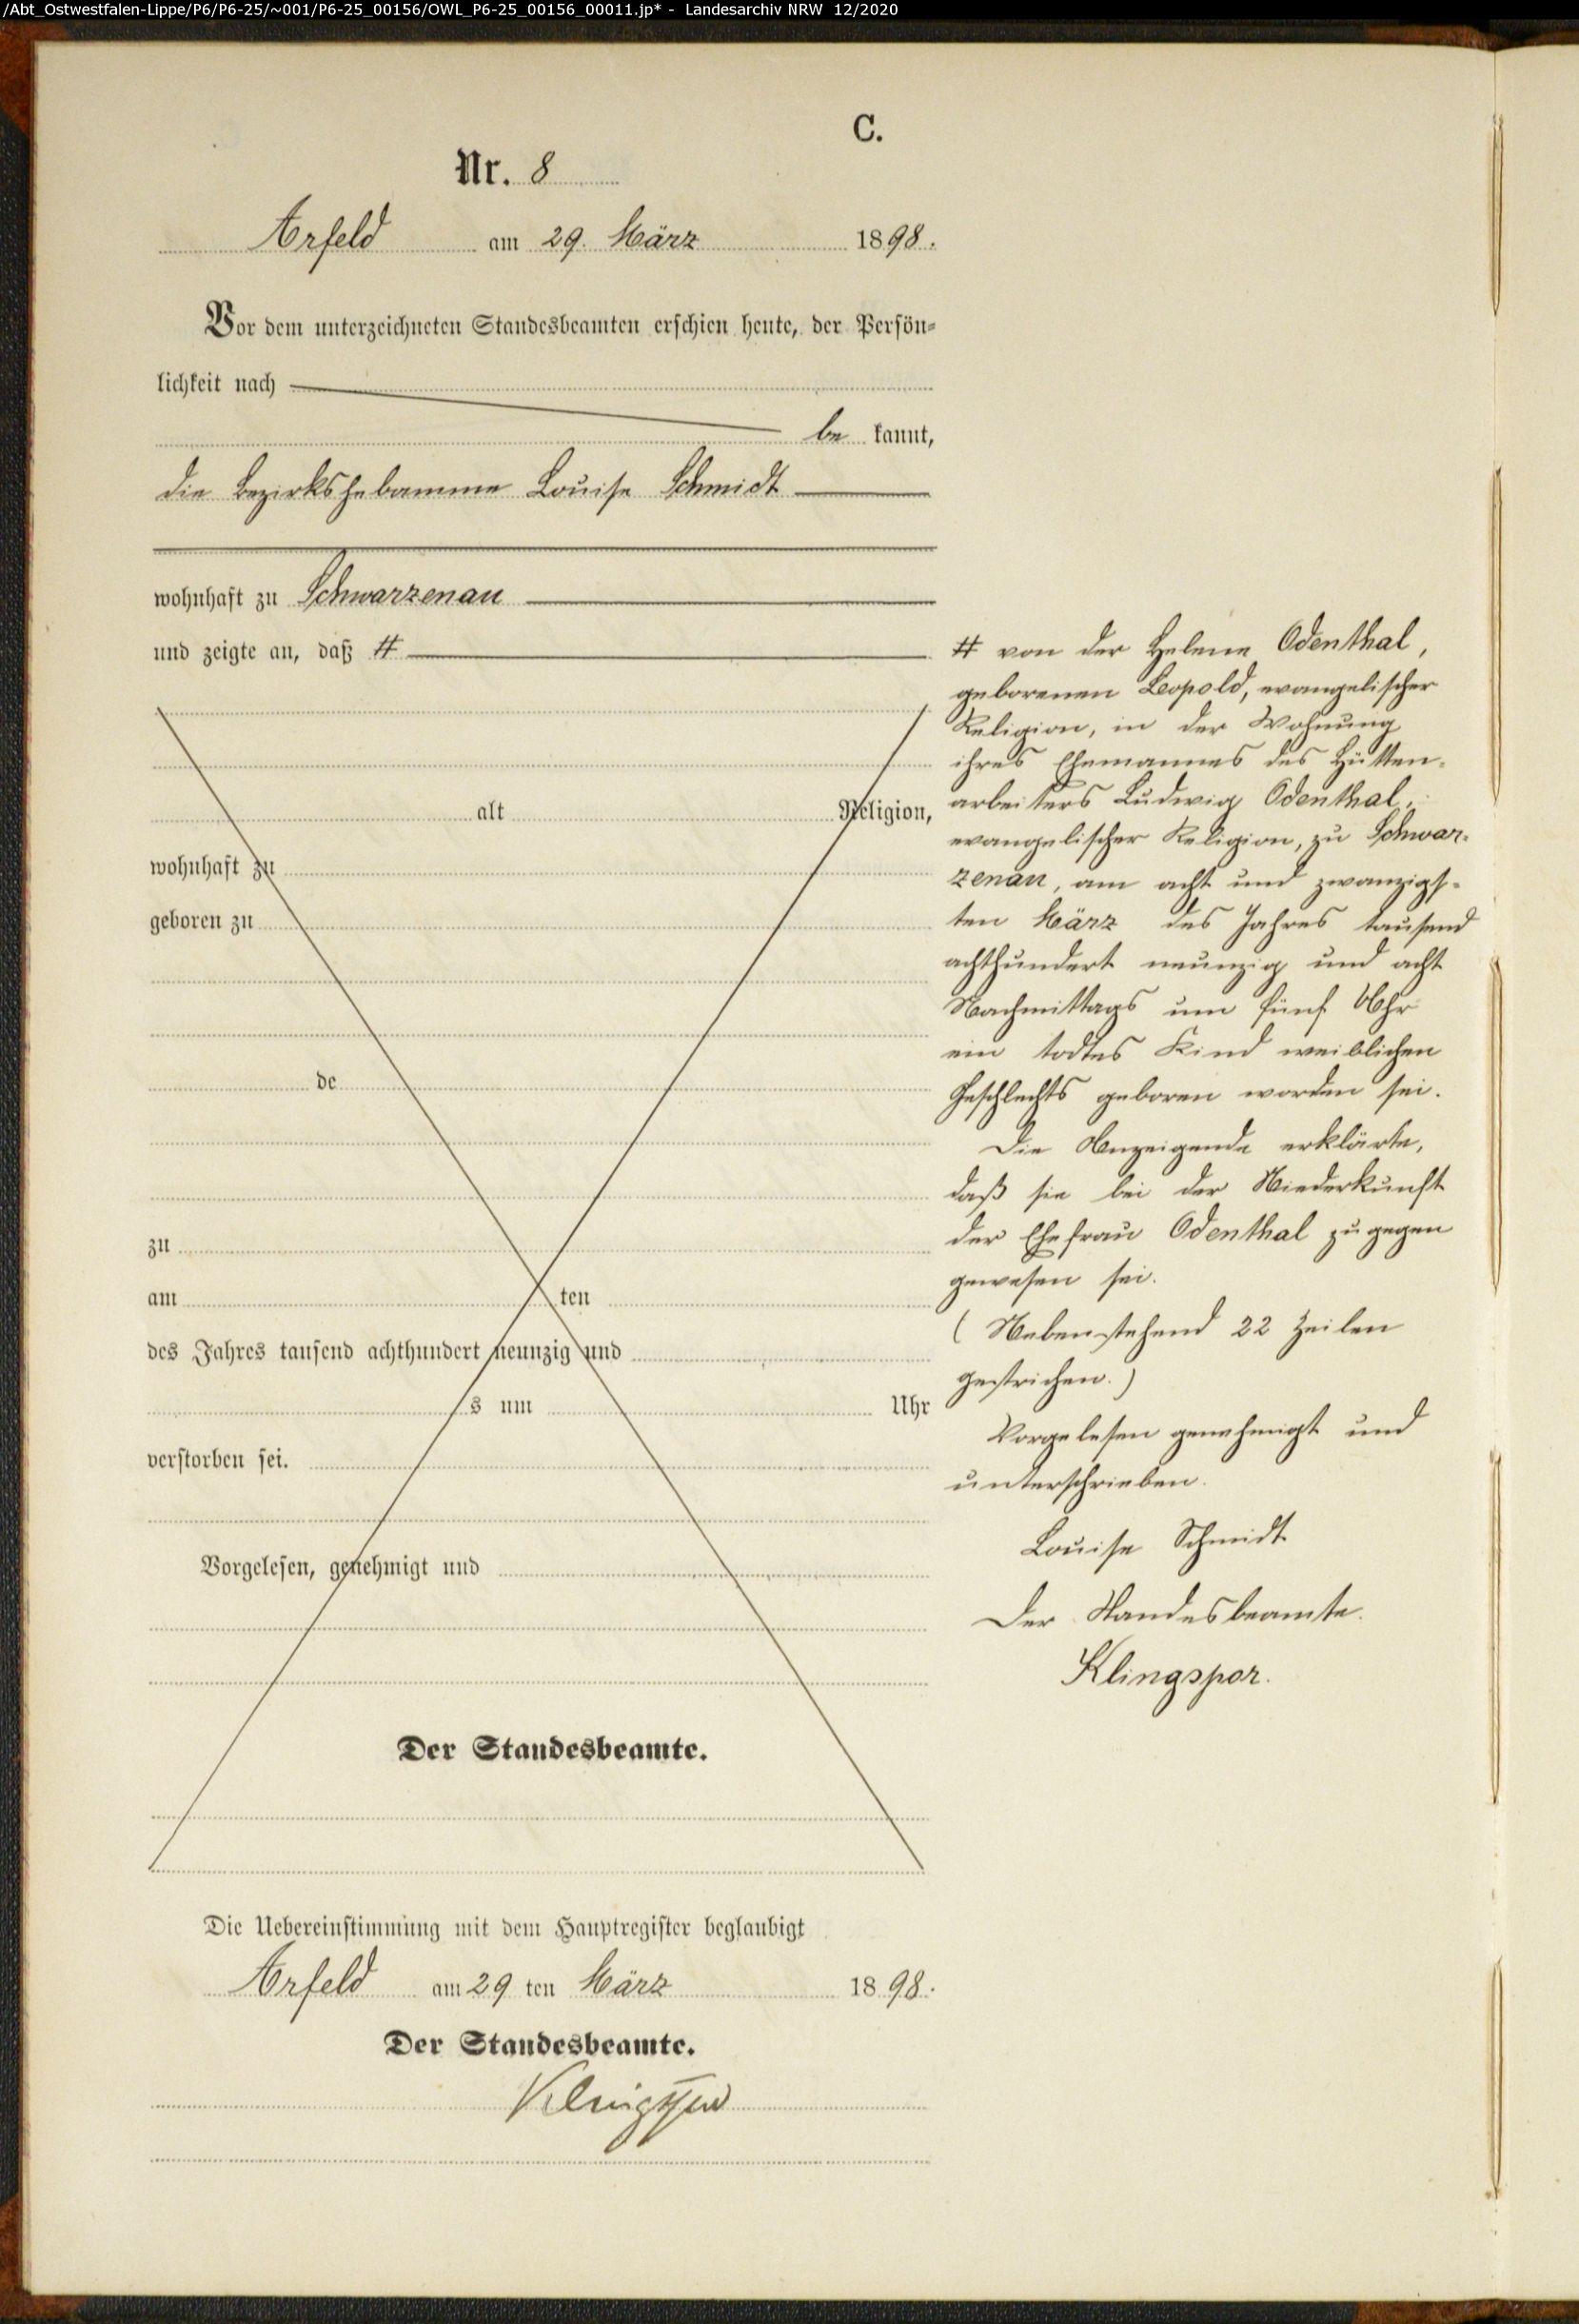 /Abt_Ostwestfalen-Lippe/P6/P6-25/~001/P6-25_00156/OWL_P6-25_00156_00011.jp* - Landesarchiv NRW 12/2020
C.
Nr. 8
Arfeld am 29. März 1898.
Vor dem unterzeichneten Standesbeamten erschien heute, der Persön-
lichkeit nach
be kannt,
die Bezirkshebamme Louise Schmidt
wohnhaft zu Schwarzenau
und zeigte an, daß #
alt Religion,
wohnhaft zu
geboren zu
de
zu
am ten
des Jahres tausend achthundert neunzig und
s um Uhr
verstorben sei.
Vorgelesen, genehmigt und
Der Standesbeamte.
# von der Helene Odenthal,
geborenen Leopold, evangelischer
Religion, in der Wohnung
ihres Ehemannes des Hütten-
arbeiters Ludwig Odenthal,
evangelischer Religion, zu Schwar-
zenau, am acht und zwanzigs-
ten März des Jahres tausend
achthundert neunzig und acht
Nachmittags um fünf Uhr
ein todtes Kind weiblichen
Geschlechts geboren worden sei.
Die Anzeigende erklärte,
daß sie bei der Niederkunft
der Ehefrau Odenthal zugegen
gewesen sei.
(Nebenstehend 22 Zeilen
gestrichen.)
Vorgelesen genehmigt und
unterschrieben.
Louise Schmidt
Der Standesbeamte.
Klingspor.
Die Uebereinstimmung mit dem Hauptregister beglaubigt
Arfeld am 29 ten März 1898.
Der Standesbeamte.
Klingspor